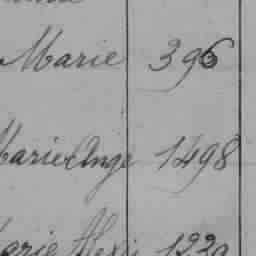 Marie 396
Marie Ange 1498
Marie Alexi 1220